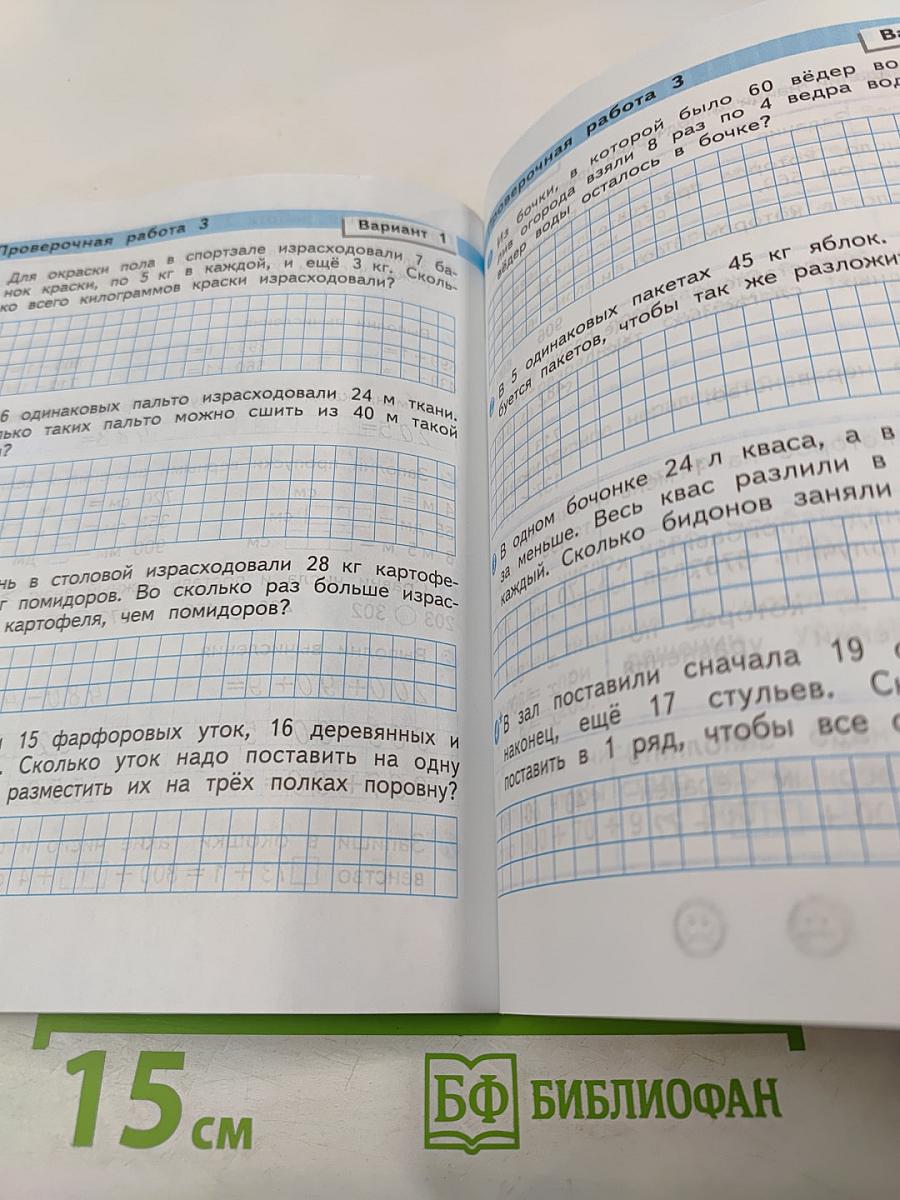 Проверочная работа 3
Вариант 1
Для окраски пола в спортзале израсходовали 7 ба-
нок краски, по 5 кг в каждой, и ещё 3 кг. Сколь-
ко всего килограммов краски израсходовали?
6 одинаковых пальто израсходовали 24 м ткани.
таких пальто можно сшить из 40 м такой
в столовой израсходовали 28 кг картофе-
помидоров. Во сколько раз больше израс-
картофеля, чем помидоров?
15 фарфоровых уток, 16 деревянных и
Сколько уток надо поставить на одну
разместить их на трёх полках поровну?
Проверочная работа 3
Из бочки, в которой было 60 вёдер
огорода взяли 8 раз по 4 ведра
вёдер воды осталось в бочке?
В 5 одинаковых пакетах 45 кг яблок.
пакетов, чтобы так же
В одном бочонке 24 л кваса, а в
за меньше. Весь квас разлили в
каждый. Сколько бидонов заняли
В зал поставили сначала 19
наконец, ещё 17 стульев.
поставить в 1 ряд, чтобы все
15 см
БФ БИБЛИОФАН